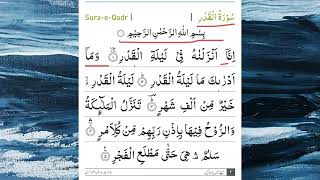 Sura-e-Qadr سُوْرَةُ الْقَدْرِ
بِسْمِ اللهِ الرَّحْمٰنِ الرَّحِيْمِ
اِنَّاۤ اَنْزَلْنٰهُ فِیْ لَیْلَةِ الْقَدْرِ ۚ وَمَاۤ
اَدْرٰىكَ مَا لَیْلَةُ الْقَدْرِ ؕ لَیْلَةُ الْقَدْرِ
خَیْرٌ مِّنْ اَلْفِ شَهْرٍ ؕ تَنَزَّلُ الْمَلٰٓىِٕكَةُ
وَالرُّوْحُ فِیْهَا بِاِذْنِ رَبِّهِمْ مِّنْ كُلِّ اَمْرٍ
سَلٰمٌ هِیَ حَتّٰی مَطْلَعِ الْفَجْرِ